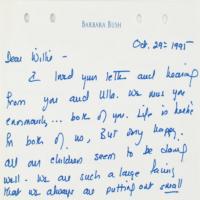 BARBARA BUSH
Oct. 29th 1995
Dear Willie -
I loved your letter and hearing
from you and Ulla. We miss you
enormously... both of you. Life is hectic
for both of us, But very happy.
All our children seem to be doing
well - We are such a large family
that we always are putting out small